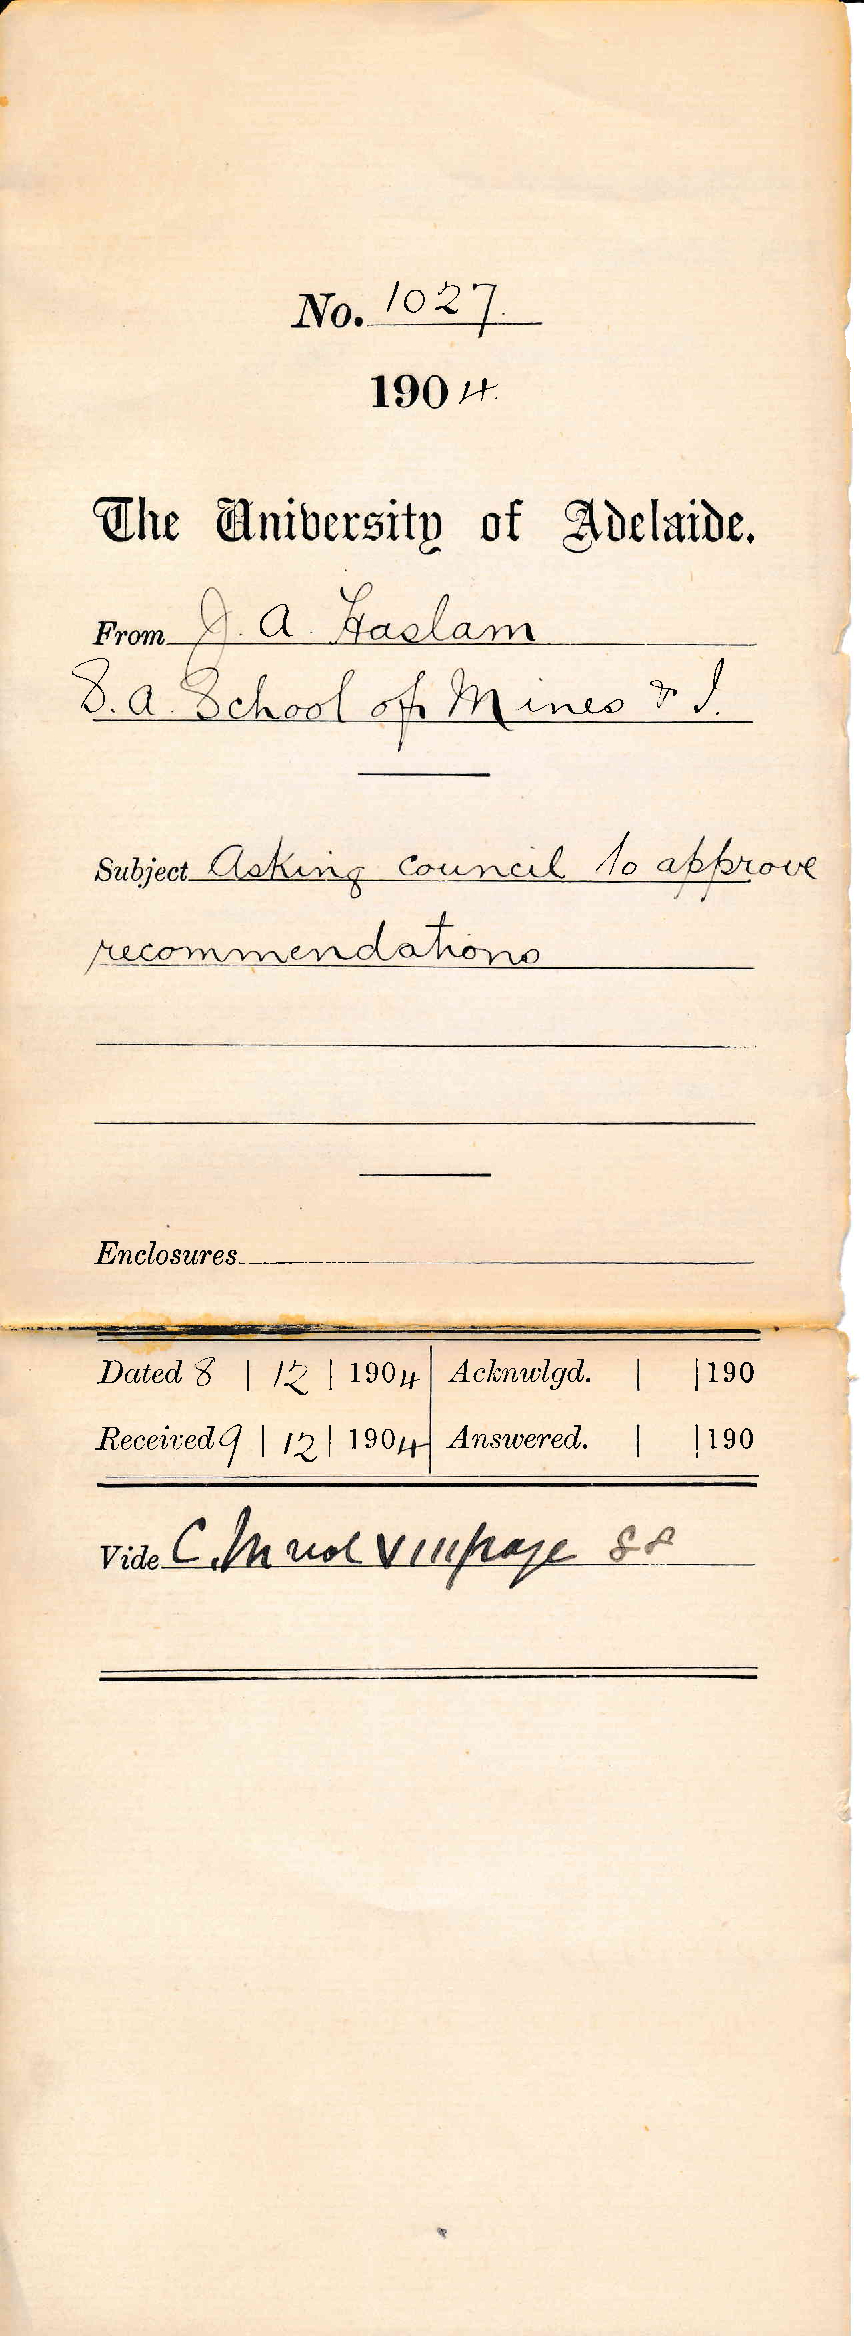 No. 1027.
1904.
The University of Adelaide.
From J. A. Haslam
S. A. School of Mines & I.
Subject Asking Council to approve
recommendations
Enclosures
Dated 8 | 12 | 1904 Acknwlgd. | | 190
Received 9 | 12 | 1904 Answered. | | 190
Vide C. M vol VIII page 88